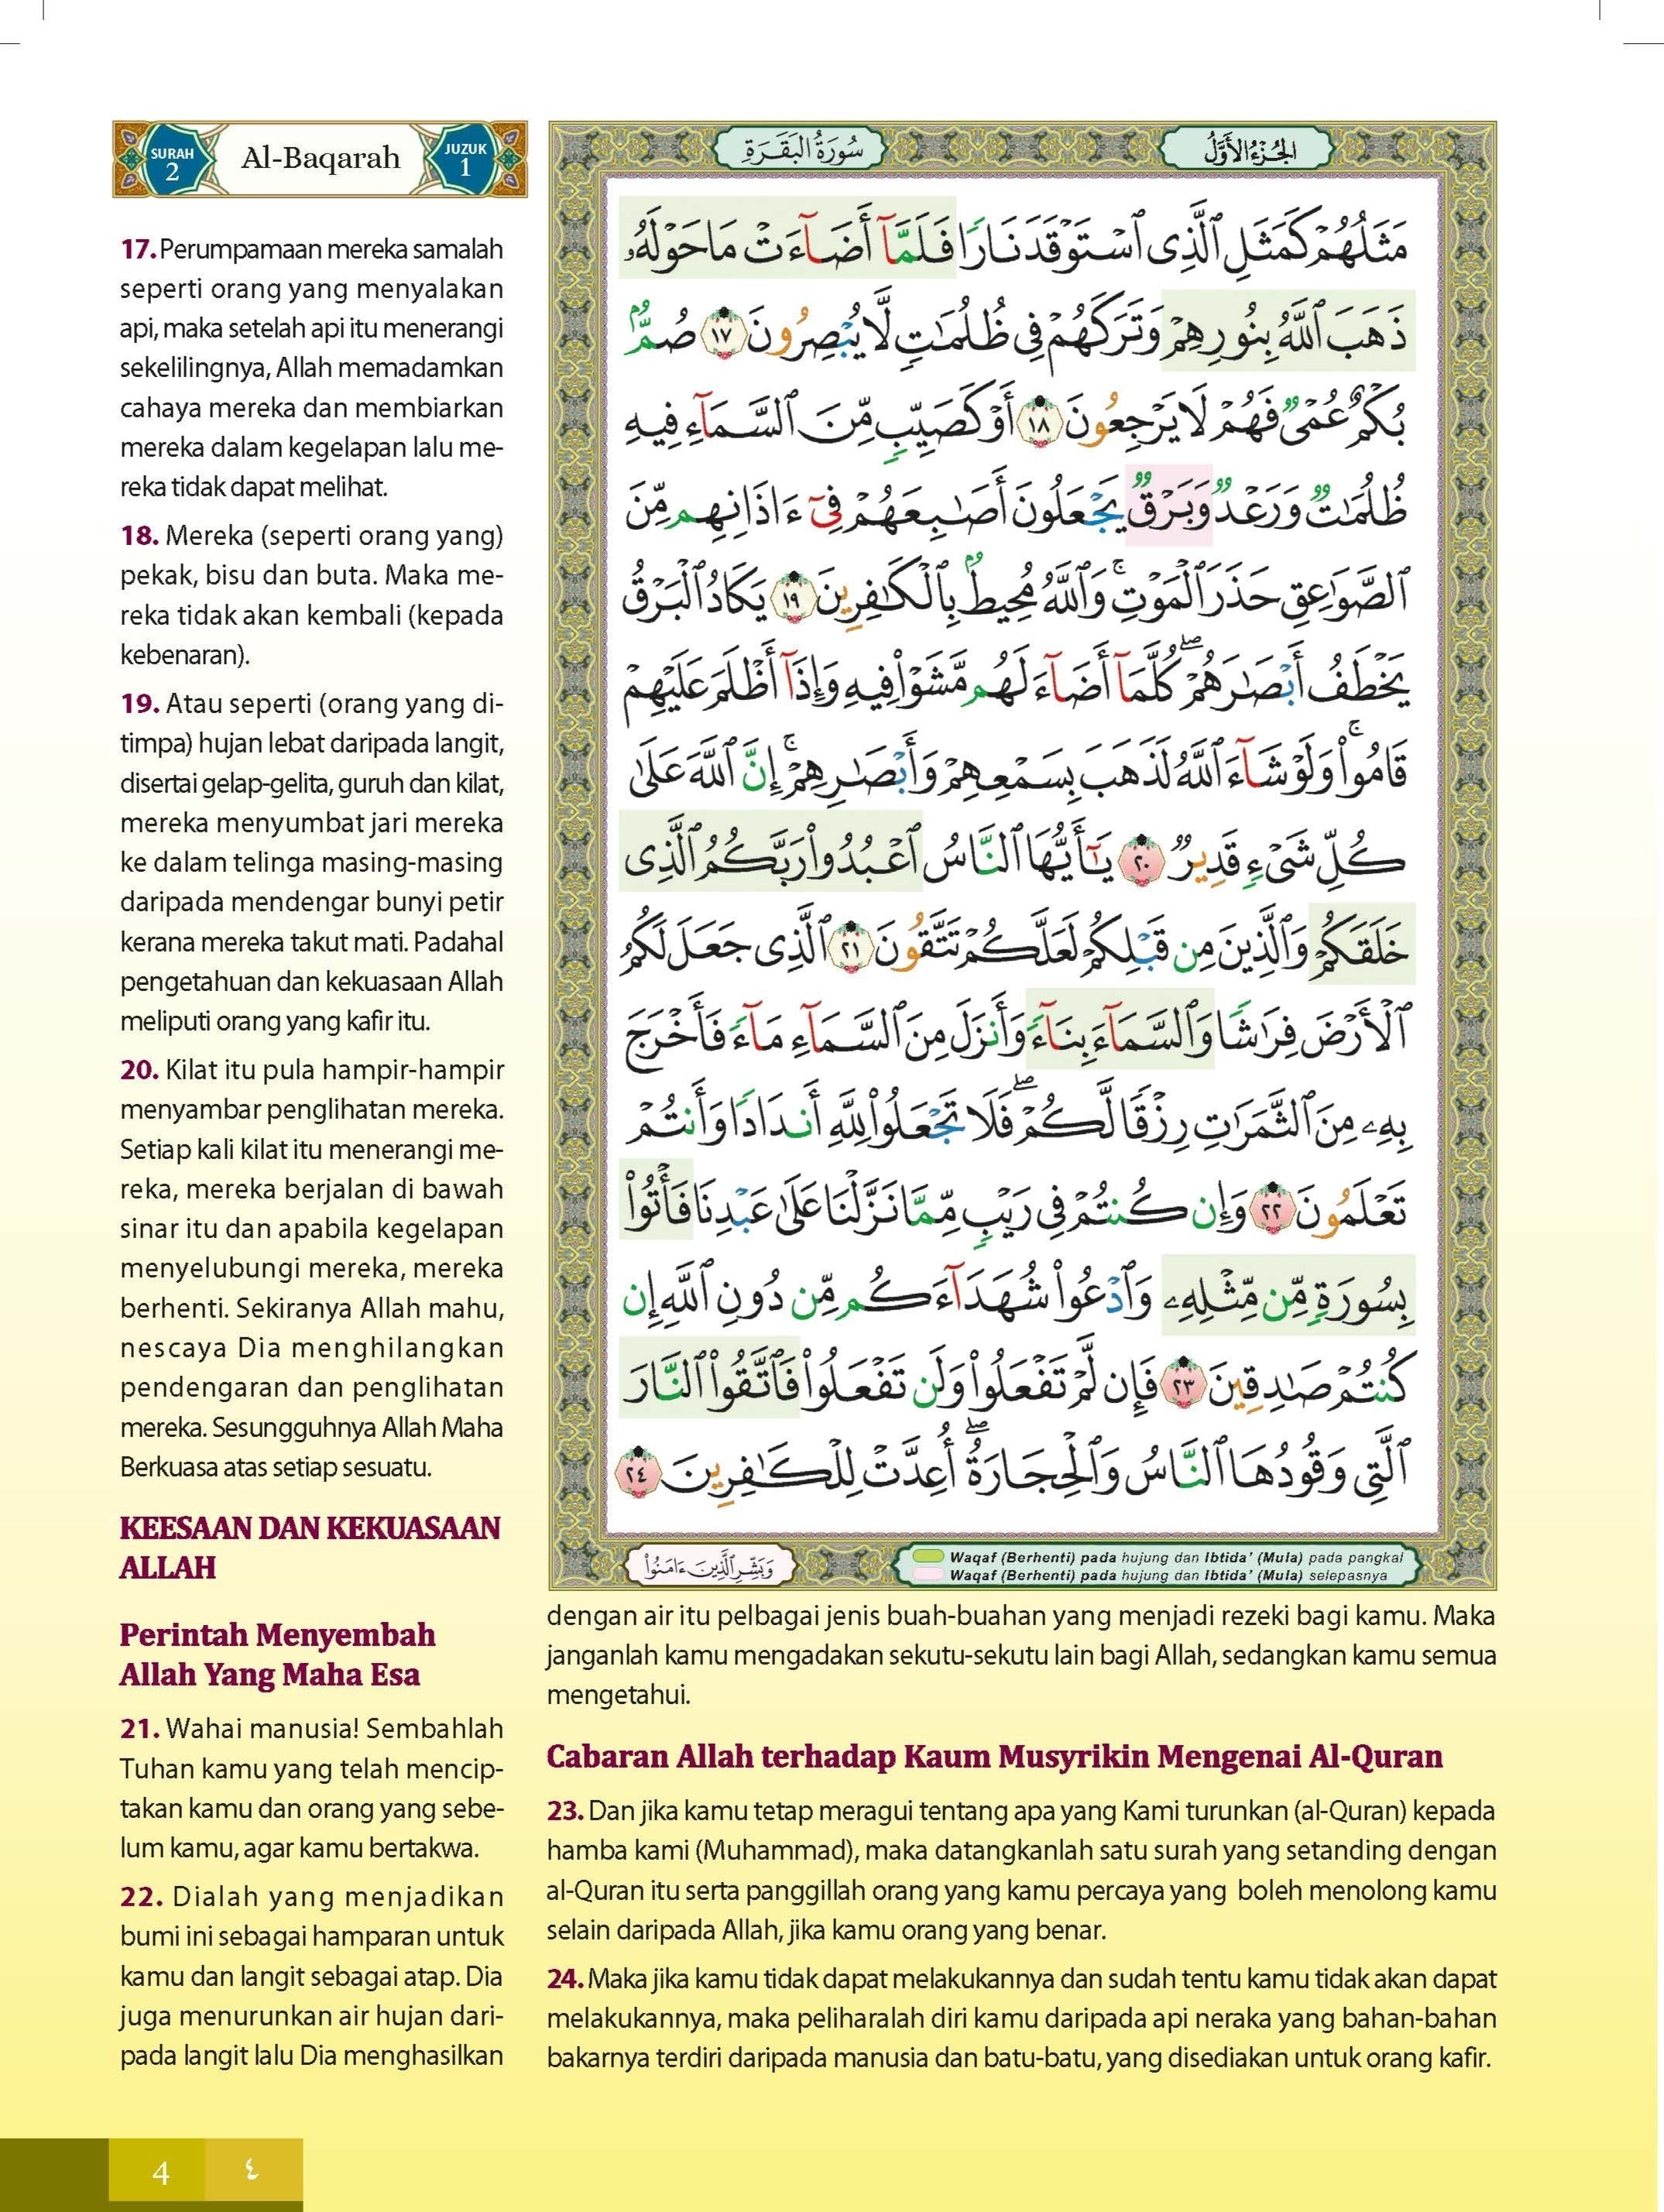 SURAH
2
Al-Baqarah
JUZUK
1
17. Perumpamaan mereka samalah
seperti orang yang menyalakan
api, maka setelah api itu menerangi
sekelilingnya, Allah memadamkan
cahaya mereka dan membiarkan
mereka dalam kegelapan lalu me-
reka tidak dapat melihat.
18. Mereka (seperti orang yang)
pekak, bisu dan buta. Maka me-
reka tidak akan kembali (kepada
kebenaran).
19. Atau seperti (orang yang di-
timpa) hujan lebat daripada langit,
disertai gelap-gelita, guruh dan kilat,
mereka menyumbat jari mereka
ke dalam telinga masing-masing
daripada mendengar bunyi petir
kerana mereka takut mati. Padahal
pengetahuan dan kekuasaan Allah
meliputi orang yang kafir itu.
20. Kilat itu pula hampir-hampir
menyambar penglihatan mereka.
Setiap kali kilat itu menerangi me-
reka, mereka berjalan di bawah
sinar itu dan apabila kegelapan
menyelubungi mereka, mereka
berhenti. Sekiranya Allah mahu,
nescaya Dia menghilangkan
pendengaran dan penglihatan
mereka. Sesungguhnya Allah Maha
Berkuasa atas setiap sesuatu.
KEESAAN DAN KEKUASAAN
ALLAH
Perintah Menyembah
Allah Yang Maha Esa
21. Wahai manusia! Sembahlah
Tuhan kamu yang telah mencip-
takan kamu dan orang yang sebe-
lum kamu, agar kamu bertakwa.
22. Dialah yang menjadikan
bumi ini sebagai hamparan untuk
kamu dan langit sebagai atap. Dia
juga menurunkan air hujan dari-
pada langit lalu Dia menghasilkan
الجُزْءُ الأَوَّلُ
سُورَةُ البَقَرَةِ
مَثَلُهُمْ كَمَثَلِ ٱلَّذِى ٱسْتَوْقَدَ نَارًا فَلَمَّآ أَضَآءَتْ مَا حَوْلَهُۥ
ذَهَبَ ٱللَّهُ بِنُورِهِمْ وَتَرَكَهُمْ فِى ظُلُمَٰتٍ لَّا يُبْصِرُونَ ١٧ صُمٌّۢ
بُكْمٌ عُمْىٌ فَهُمْ لَا يَرْجِعُونَ ١٨ أَوْ كَصَيِّبٍ مِّنَ ٱلسَّمَآءِ فِيهِ
ظُلُمَٰتٌ وَرَعْدٌ وَبَرْقٌ يَجْعَلُونَ أَصَٰبِعَهُمْ فِىٓ ءَاذَانِهِم مِّنَ
ٱلصَّوَٰعِقِ حَذَرَ ٱلْمَوْتِ ۚ وَٱللَّهُ مُحِيطٌۢ بِٱلْكَٰفِرِينَ ١٩ يَكَادُ ٱلْبَرْقُ
يَخْطَفُ أَبْصَٰرَهُمْ ۖ كُلَّمَآ أَضَآءَ لَهُم مَّشَوْا۟ فِيهِ وَإِذَآ أَظْلَمَ عَلَيْهِمْ
قَامُوا۟ ۚ وَلَوْ شَآءَ ٱللَّهُ لَذَهَبَ بِسَمْعِهِمْ وَأَبْصَٰرِهِمْ ۚ إِنَّ ٱللَّهَ عَلَىٰ
كُلِّ شَىْءٍ قَدِيرٌ ٢٠ يَٰٓأَيُّهَا ٱلنَّاسُ ٱعْبُدُوا۟ رَبَّكُمُ ٱلَّذِى
خَلَقَكُمْ وَٱلَّذِينَ مِن قَبْلِكُمْ لَعَلَّكُمْ تَتَّقُونَ ٢١ ٱلَّذِى جَعَلَ لَكُمُ
ٱلْأَرْضَ فِرَٰشًا وَٱلسَّمَآءَ بِنَآءً وَأَنزَلَ مِنَ ٱلسَّمَآءِ مَآءً فَأَخْرَجَ
بِهِۦ مِنَ ٱلثَّمَرَٰتِ رِزْقًا لَّكُمْ ۖ فَلَا تَجْعَلُوا۟ لِلَّهِ أَندَادًا وَأَنتُمْ
تَعْلَمُونَ ٢٢ وَإِن كُنتُمْ فِى رَيْبٍ مِّمَّا نَزَّلْنَا عَلَىٰ عَبْدِنَا فَأْتُوا۟
بِسُورَةٍ مِّن مِّثْلِهِۦ وَٱدْعُوا۟ شُهَدَآءَكُم مِّن دُونِ ٱللَّهِ إِن
كُنتُمْ صَٰدِقِينَ ٢٣ فَإِن لَّمْ تَفْعَلُوا۟ وَلَن تَفْعَلُوا۟ فَٱتَّقُوا۟ ٱلنَّارَ
ٱلَّتِى وَقُودُهَا ٱلنَّاسُ وَٱلْحِجَارَةُ ۖ أُعِدَّتْ لِلْكَٰفِرِينَ ٢٤
وَبَشِّرِ ٱلَّذِينَ ءَامَنُوا۟
Waqaf (Berhenti) pada hujung dan Ibtida' (Mula) pada pangkal
Waqaf (Berhenti) pada hujung dan Ibtida' (Mula) selepasnya
dengan air itu pelbagai jenis buah-buahan yang menjadi rezeki bagi kamu. Maka
janganlah kamu mengadakan sekutu-sekutu lain bagi Allah, sedangkan kamu semua
mengetahui.
Cabaran Allah terhadap Kaum Musyrikin Mengenai Al-Quran
23. Dan jika kamu tetap meragui tentang apa yang Kami turunkan (al-Quran) kepada
hamba kami (Muhammad), maka datangkanlah satu surah yang setanding dengan
al-Quran itu serta panggillah orang yang kamu percaya yang boleh menolong kamu
selain daripada Allah, jika kamu orang yang benar.
24. Maka jika kamu tidak dapat melakukannya dan sudah tentu kamu tidak akan dapat
melakukannya, maka peliharalah diri kamu daripada api neraka yang bahan-bahan
bakarnya terdiri daripada manusia dan batu-batu, yang disediakan untuk orang kafir.
4
٤